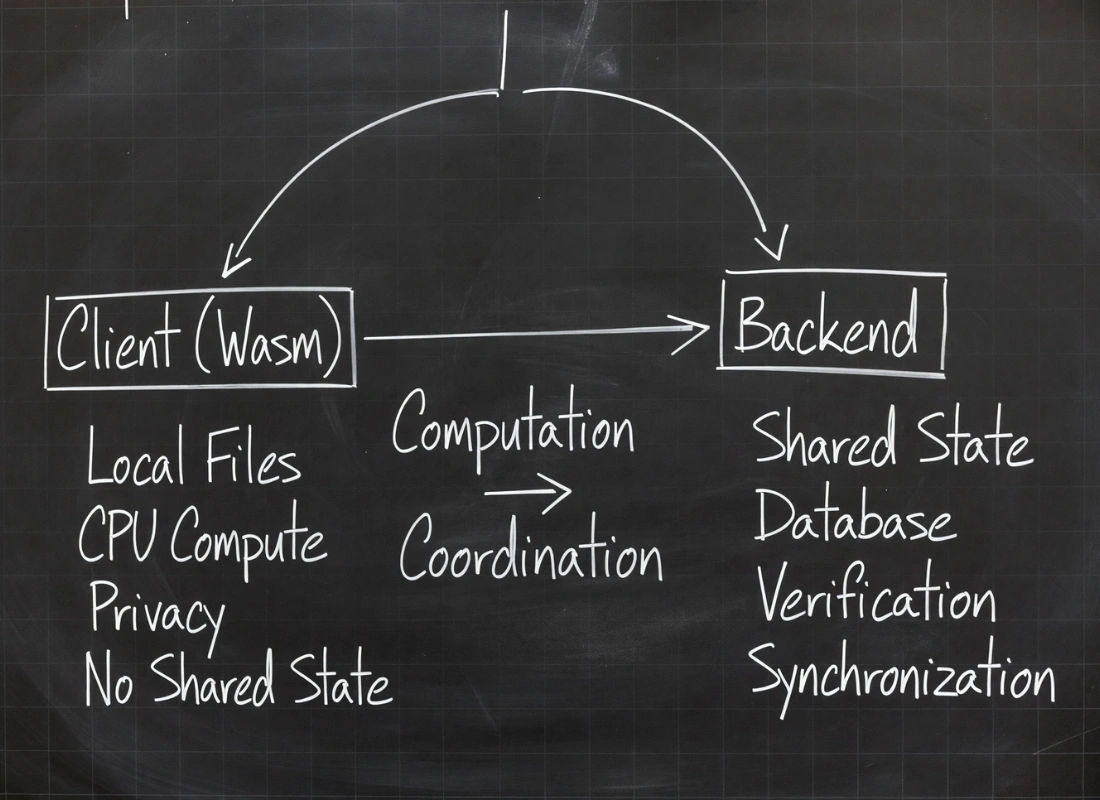 Client (Wasm)
Local Files
CPU Compute
Privacy
No Shared State
Computation
→
Coordination
Backend
Shared State
Database
Verification
Synchronization